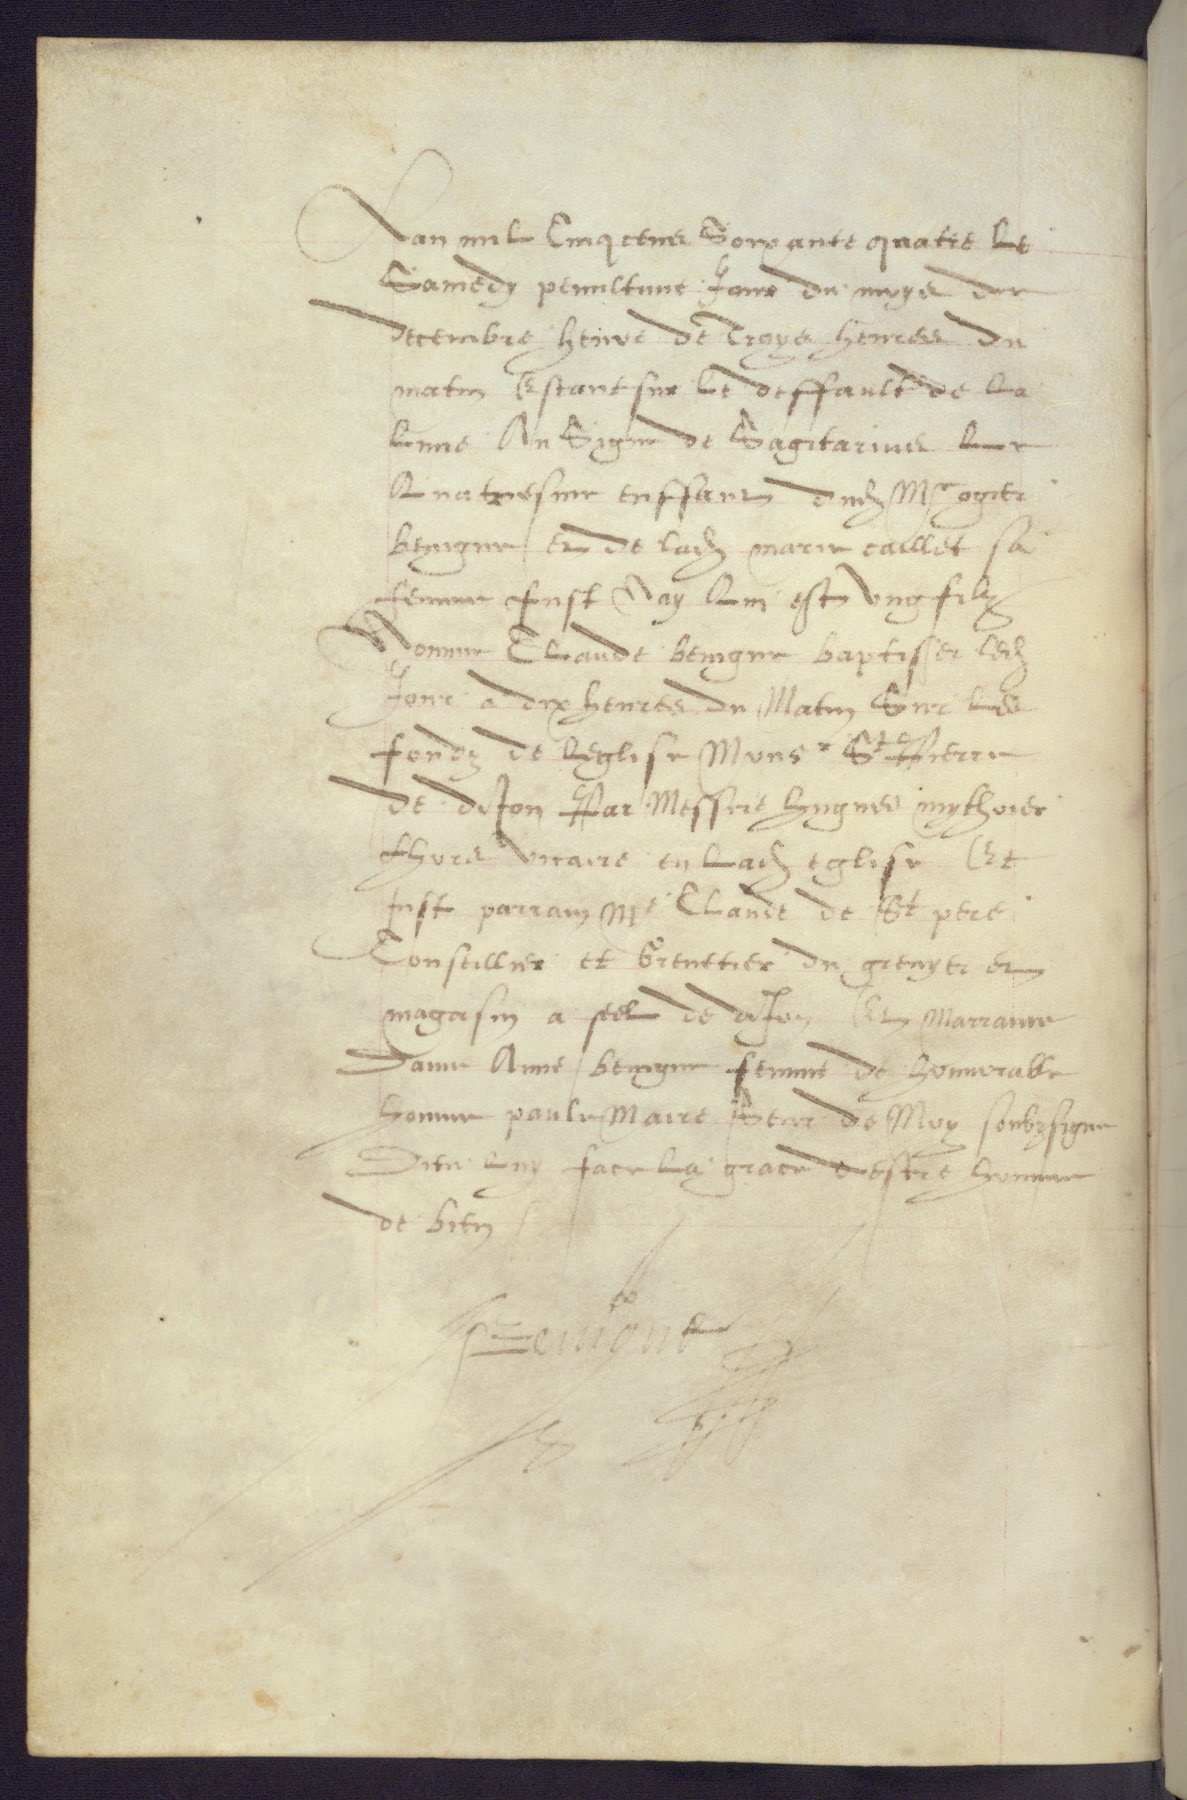 Lan mil Cinq cens Soixante quatre Le
Samedy penultime Jour du moys de
Decembre heure de Troys heures du
matin Estant sur Le deffault de La
Lune Au Signe de Sagitarius Le
Quatresme enffant dud Mre ogier
benigne et de lad marie caillet sa
femme fust Nay Qui est ung filz
Nomme Claude benigne baptisser led
Jour a dix heures du Matin Sur Les
fondz de Leglise Monsr St Pierre
de diJon Par Messire hugues
vicaire en Lad eglise Et
fust parrain Me Claude de St pere
Conseillier et Grenetier du grenyer et
magasin a seel de diJon Et Marraine
Dame Anne benigne femme de honnorable
homme paule Maire Seur de Moy soubzsigne
Dieu Luy face La grace destre homme
de bien
Benigne